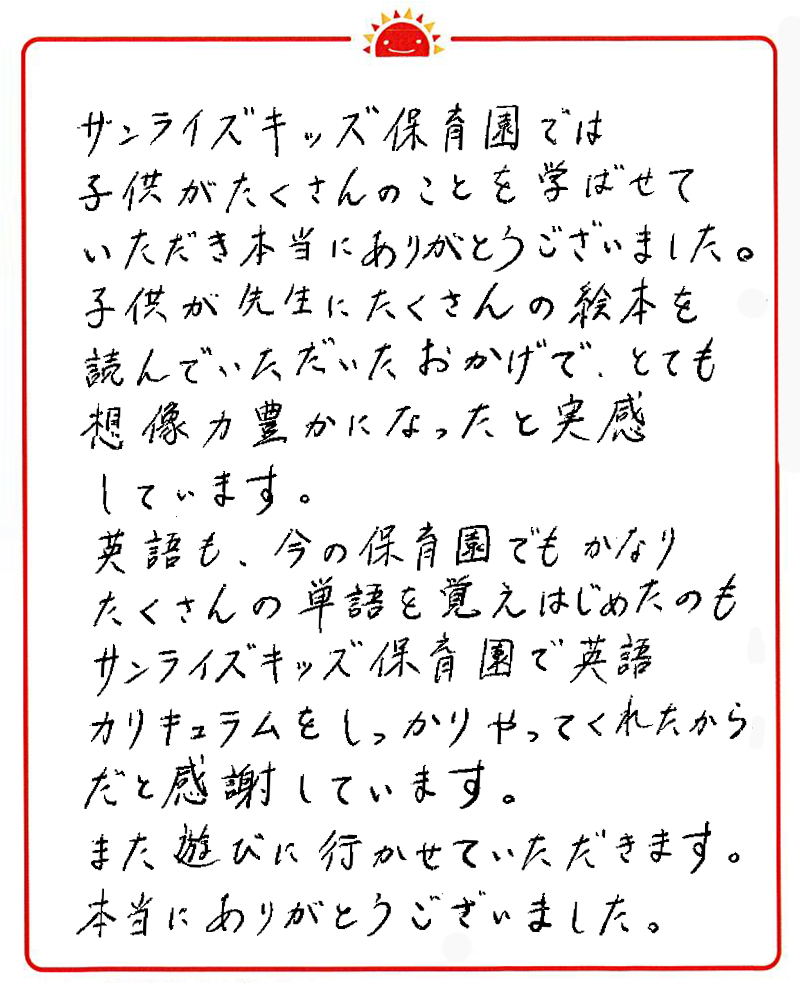 サンライズキッズ保育園では
子供がたくさんのことを学ばせて
いただき本当にありがとうございました。
子供が先生にたくさんの絵本を
読んでいただいたおかげで、とても
想像力豊かになったと実感
しています。
英語も、今の保育園でもかなり
たくさんの単語を覚えはじめたのも
サンライズキッズ保育園で英語
カリキュラムをしっかりやってくれたから
だと感謝しています。
また遊びに行かせていただきます。
本当にありがとうございました。